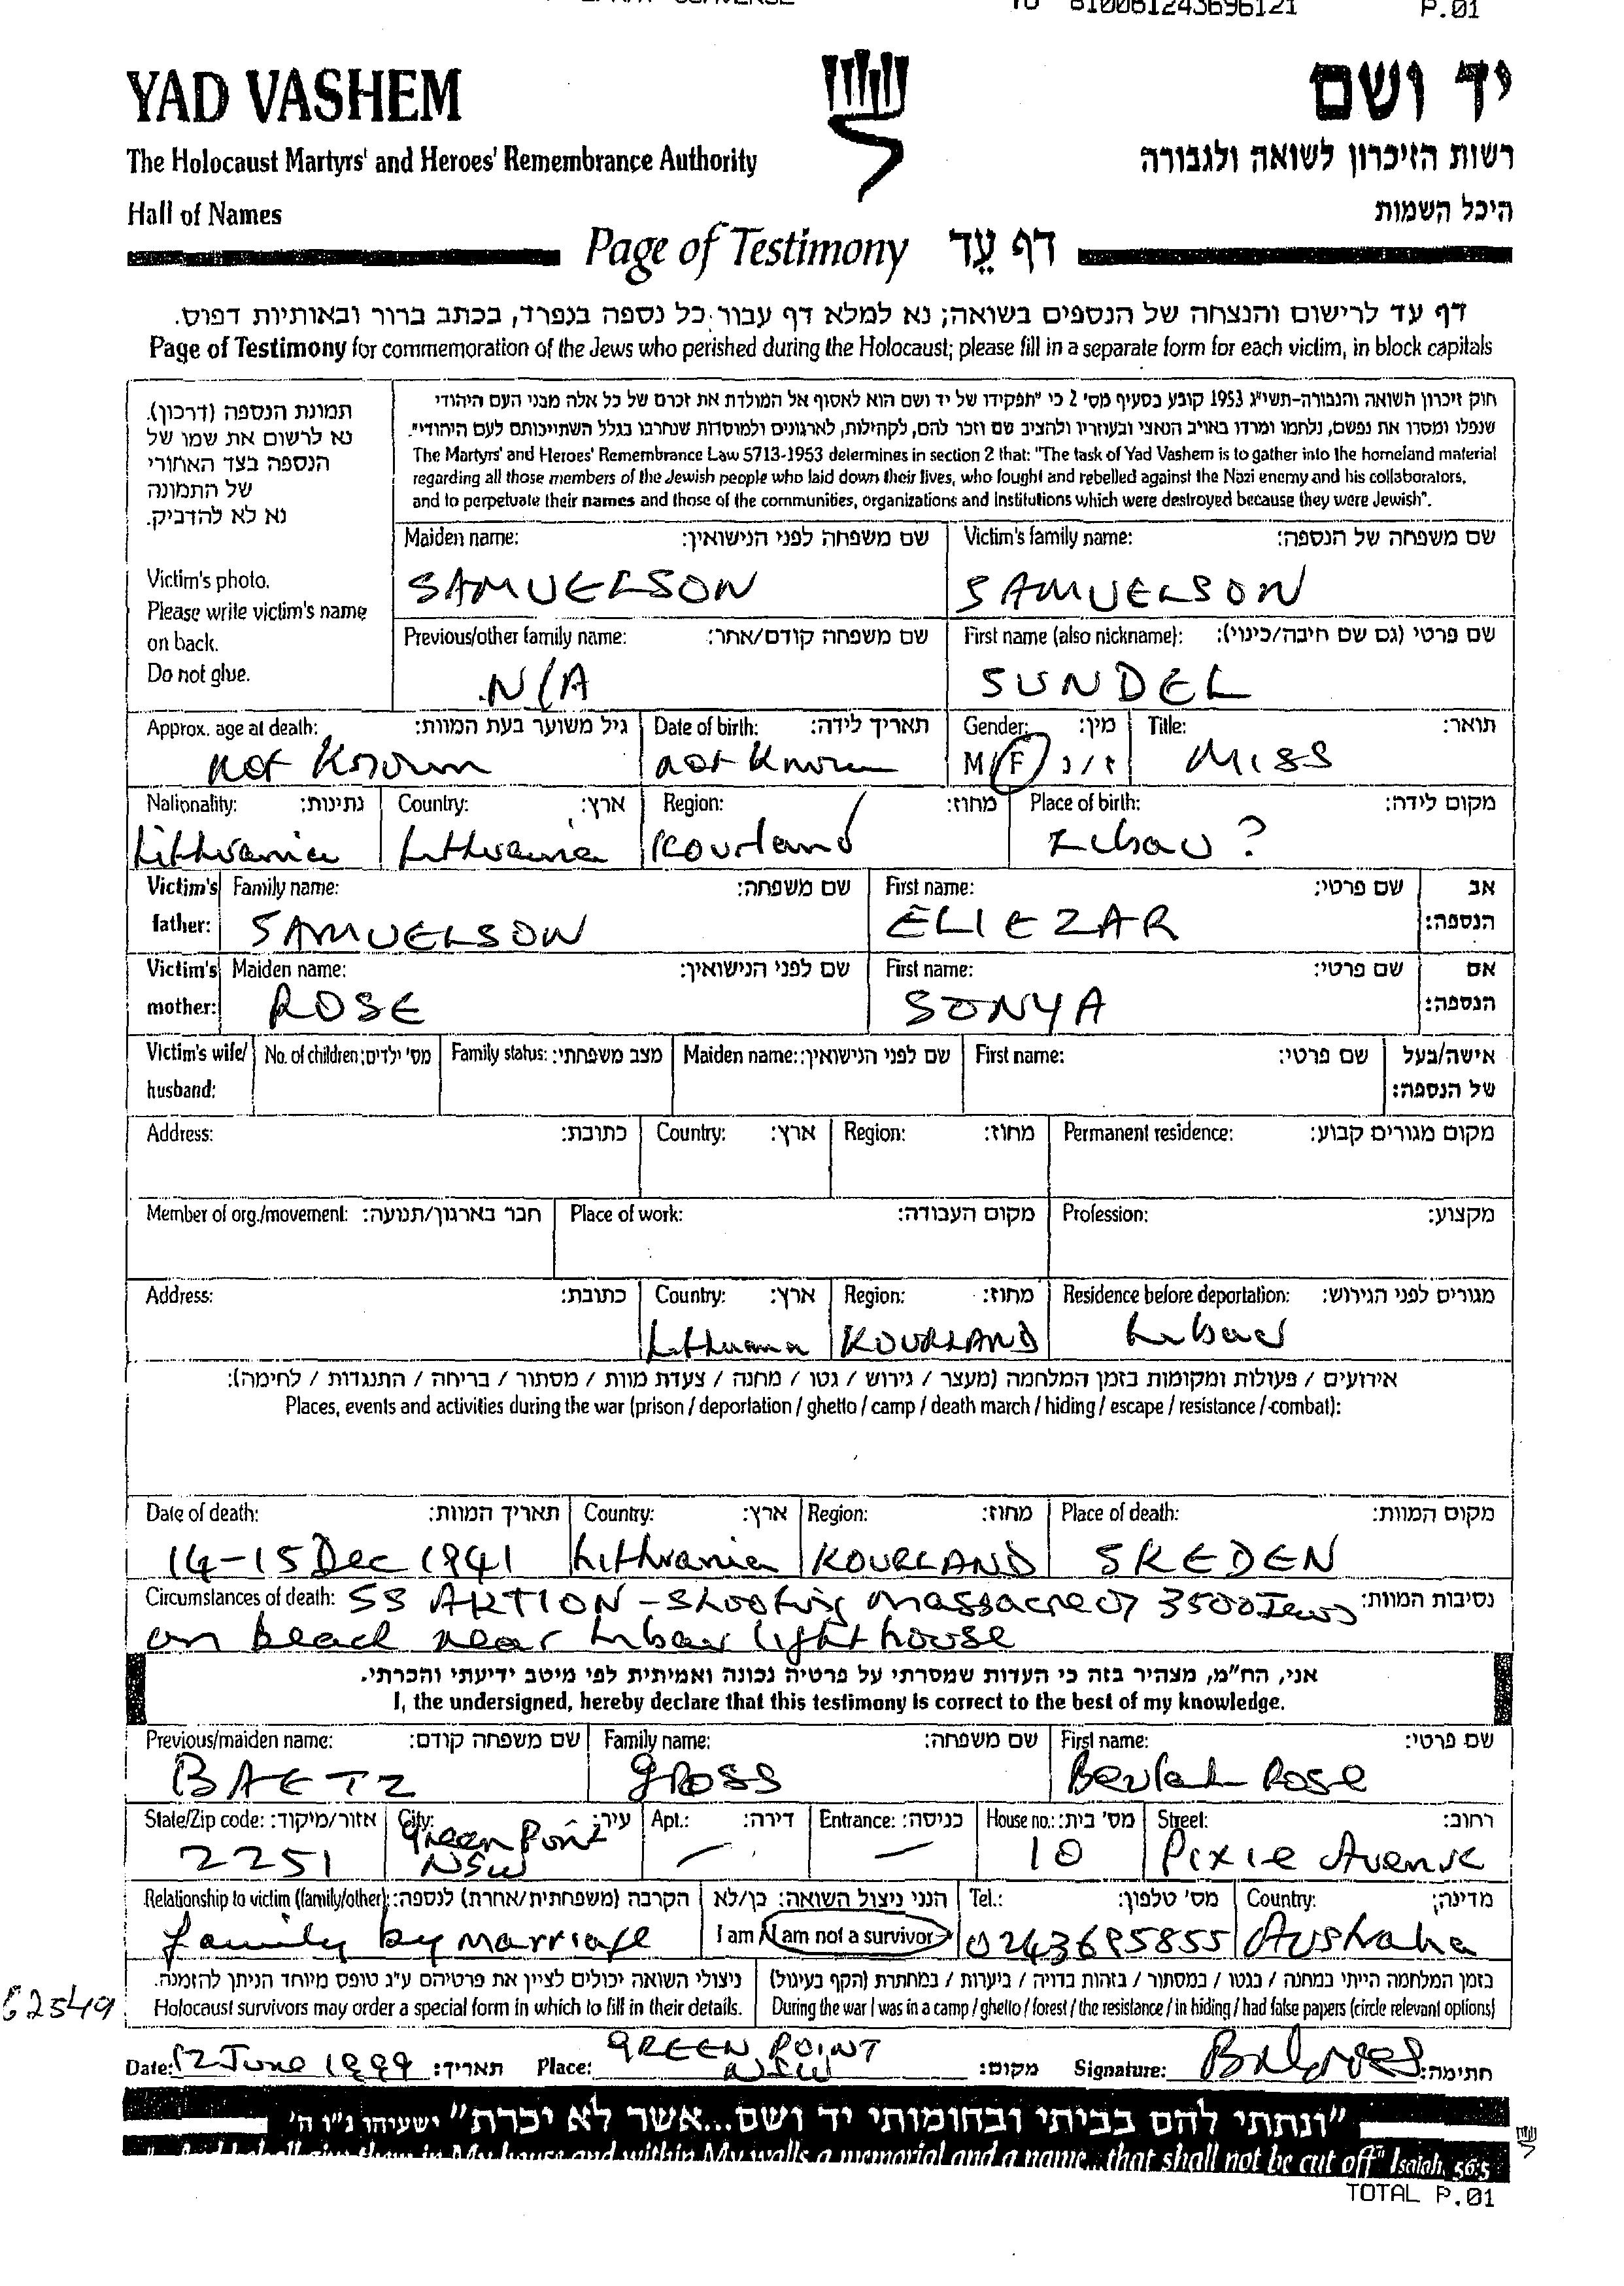 TO 610061243696121 P.01
YAD VASHEM יד ושם
The Holocaust Martyrs' and Heroes' Remembrance Authority רשות הזיכרון לשואה ולגבורה
Hall of Names היכל השמות
Page of Testimony דף עֵד
דף עד לרישום והנצחה של הנספים בשואה; נא למלא דף עבור כל נספה בנפרד, בכתב ברור ובאותיות דפוס.
Page of Testimony for commemoration of the Jews who perished during the Holocaust; please fill in a separate form for each victim, in block capitals
תמונת הנספה (דרכון).
נא לרשום את שמו של
הנספה בצד האחורי
של התמונה
נא לא להדביק.
Victim's photo.
Please write victim's name
on back.
Do not glue.
חוק זיכרון השואה והגבורה-תשי"ג 1953 קובע בסעיף מס' 2 כי "תפקידו של יד ושם הוא לאסוף אל המולדת את זכרם של כל אלה מבני העם היהודי
שנפלו ומסרו את נפשם, נלחמו ומרדו באויב הנאצי ובעוזריו ולהציב שם וזכר להם, לקהילות, לארגונים ולמוסדות שנחרבו בגלל השתייכותם לעם היהודי".
The Martyrs' and Heroes' Remembrance Law 5713-1953 determines in section 2 that: "The task of Yad Vashem is to gather into the homeland material
regarding all those members of the Jewish people who laid down their lives, who fought and rebelled against the Nazi enemy and his collaborators,
and to perpetuate their names and those of the communities, organizations and institutions which were destroyed because they were Jewish".
Maiden name: שם משפחה לפני הנישואין: Victim's family name: שם משפחה של הנספה:
SAMUELSON SAMUELSON
Previous/other family name: שם משפחה קודם/אחר: First name (also nickname): שם פרטי (גם שם חיבה/כינוי):
N/A SUNDEL
Approx. age at death: גיל משוער בעת המוות: Date of birth: תאריך לידה: Gender: מין: Title: תואר:
not known not known M/F ז/נ MISS
Nationality: נתינות: Country: ארץ: Region: מחוז: Place of birth: מקום לידה:
Lithvania Lithvania Kourland Libau ?
Victim's father: Family name: שם משפחה: First name: שם פרטי: אב הנספה:
SAMUELSON ELIEZAR
Victim's mother: Maiden name: שם לפני הנישואין: First name: שם פרטי: אם הנספה:
ROSE SONYA
Victim's wife/ husband: No. of children: מס' ילדים: Family status: מצב משפחתי: Maiden name: שם לפני הנישואין: First name: שם פרטי: אישה/בעל של הנספה:
Address: כתובת: Country: ארץ: Region: מחוז: Permanent residence: מקום מגורים קבוע:
Member of org./movement: חבר בארגון/תנועה: Place of work: מקום העבודה: Profession: מקצוע:
Address: כתובת: Country: ארץ: Region: מחוז: Residence before deportation: מגורים לפני הגירוש:
Lithuana KOURLAND Libau
אירועים / פעולות ומקומות בזמן המלחמה (מעצר / גירוש / גטו / מחנה / צעדת מוות / מסתור / בריחה / התנגדות / לחימה):
Places, events and activities during the war (prison / deportation / ghetto / camp / death march / hiding / escape / resistance / combat):
Date of death: תאריך המוות: Country: ארץ: Region: מחוז: Place of death: מקום המוות:
14-15 Dec 1941 Lithvania KOURLAND SKEDEN
Circumstances of death: SS AKTION - Shooting massacre of 3500 Jews נסיבות המוות:
on beach near Libau lighthouse
אני, הח"מ, מצהיר בזה כי העדות שמסרתי על פרטיה נכונה ואמיתית לפי מיטב ידיעתי והכרתי.
I, the undersigned, hereby declare that this testimony is correct to the best of my knowledge.
Previous/maiden name: שם משפחה קודם: Family name: שם משפחה: First name: שם פרטי:
BAETZ GROSS Beulah Rose
State/Zip code: אזור/מיקוד: City: עיר: Apt.: דירה: Entrance: כניסה: House no.: מס' בית: Street: רחוב:
2251 Green Point NSW — — 10 Pixie Avenue
Relationship to victim (family/other): הקרבה (משפחתית/אחרת) לנספה: הנני ניצול השואה: כן/לא Tel.: מס' טלפון: Country: מדינה:
family by marriage I am / I am not a survivor 0243695855 Australia
ניצולי השואה יכולים לציין את פרטיהם ע"ג טופס מיוחד הניתן להזמנה. בזמן המלחמה הייתי במחנה / בגטו / במסתור / בזהות בדויה / ביערות / במחתרת (הקף בעיגול)
Holocaust survivors may order a special form in which to fill in their details. During the war I was in a camp / ghetto / forest / the resistance / in hiding / had false papers (circle relevant options)
62549
Date: 12 June 1999 תאריך: Place: GREEN POINT NSW מקום: Signature: חתימה:
"ונתתי להם בביתי ובחומותי יד ושם...אשר לא יכרת" ישעיהו נ"ו ה'
"...And I shall give them in My house and within My walls a memorial and a name...that shall not be cut off" Isaiah, 56:5
TOTAL P.01